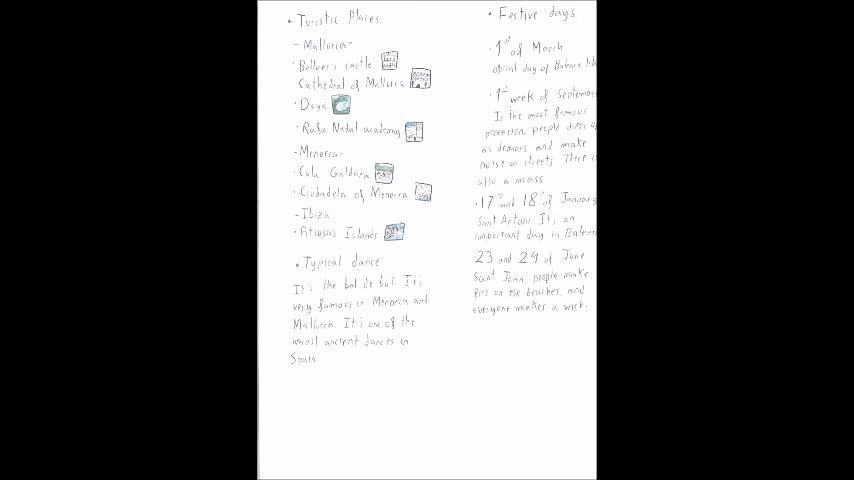 • Turistic Places.
- Mallorca-
· Bellver's castle
Cathedral of Mallorca
· Deya
· Rafa Nadal academy
- Menorca-
· Cala Galdana
· Ciudadela of Menorca
- Ibiza
· Pitiusas Islands
• Typical dance
It's the bal de bot. It's
very famous in Menorca and
Mallorca. It's one of the
most ancient dances in
Spain
• Festive days.
· 1st of March
oficial day of Balears
· 1st week of September
Is the most famous
procesion, people dress
as demons and make
noise on streets. There is
also a mass
· 17th and 18th of January
Sant Antoni It's an
important day in
23 and 24 of June
Sant Joan, people make
fire on the beaches, and
everyone makes a wish.